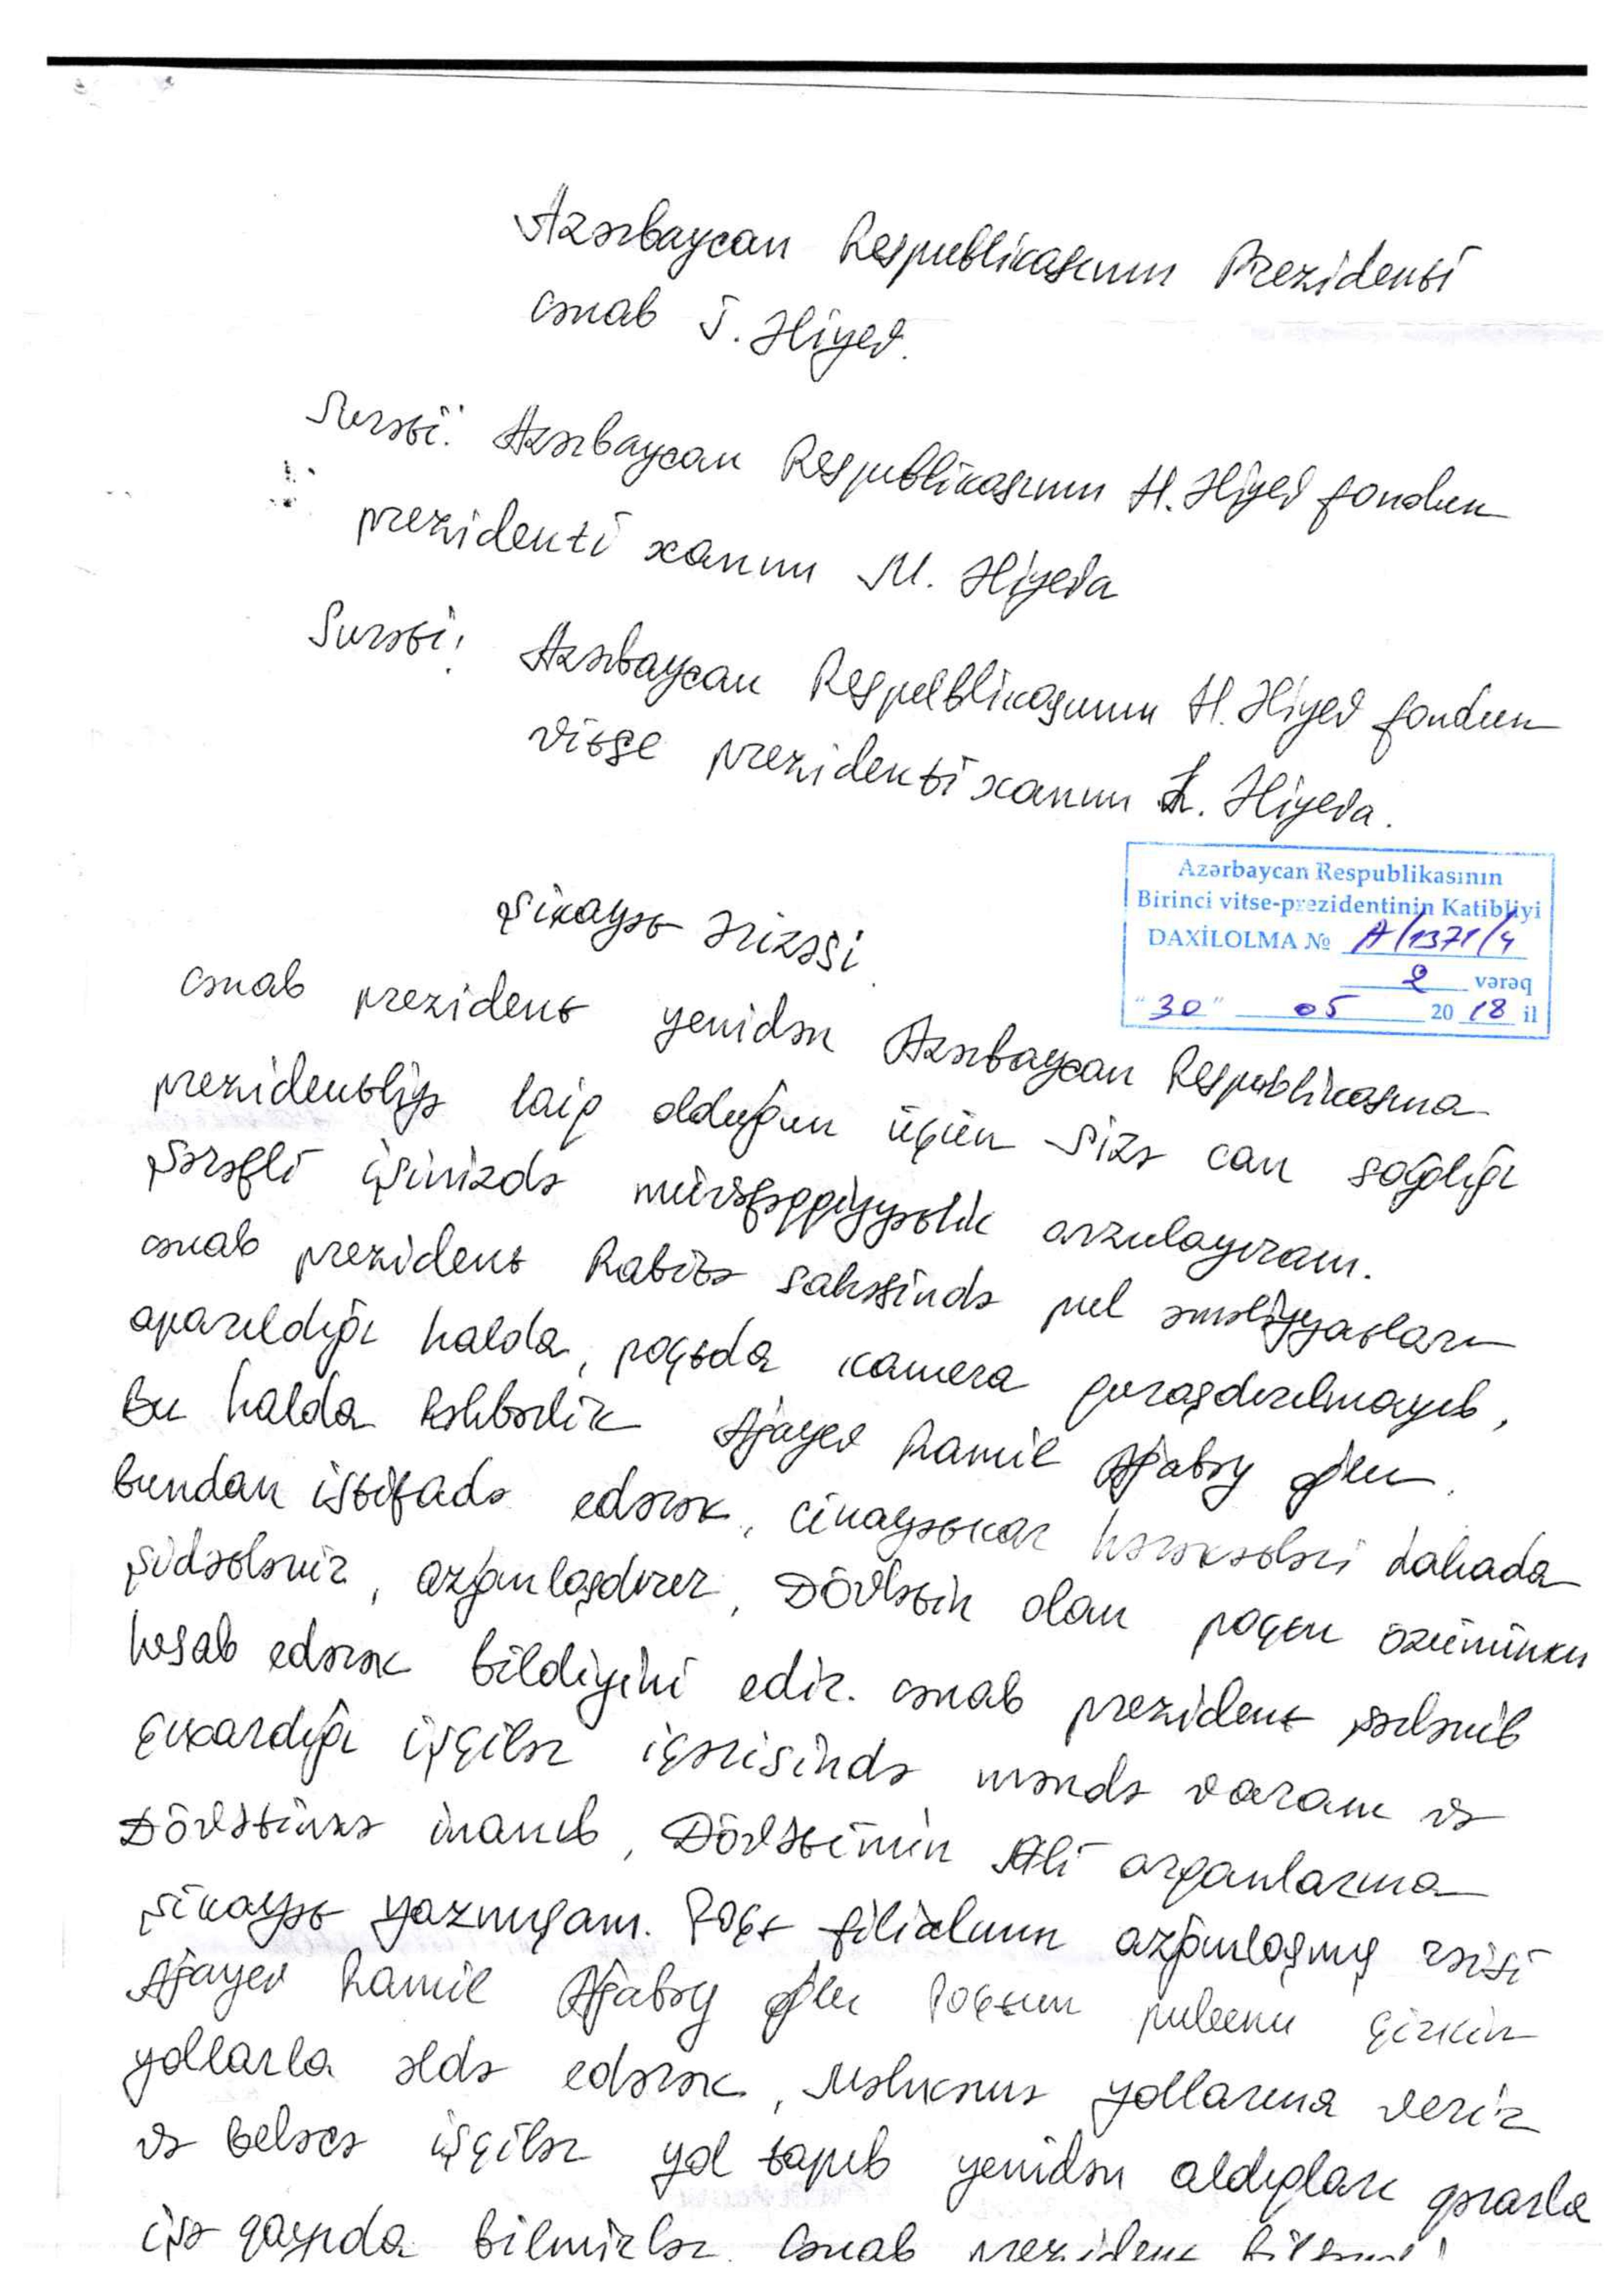 Azərbaycan Respublikasının Prezidenti
cənab İ. Əliyev.
Surəti: Azərbaycan Respublikasının H. Əliyev fondun
prezidenti xanım M. Əliyeva
Surəti: Azərbaycan Respublikasının H. Əliyev fondun
vitse prezidenti xanım L. Əliyeva.
Azərbaycan Respublikasının
Birinci vitse-prezidentinin Katibliyi
DAXİLOLMA № A/1371/4
2 vərəq
"30" 05 2018 il
Şikayət Ərizəsi.
Cənab prezident yenidən Azərbaycan Respublikasına
prezidentliyə laiq olduğun üçün Sizə can sağlığı
şərəfli işinizdə müvəfəqqiyyətlik arzulayıram.
Cənab prezident Rabitə sahəsində pul əməliyyatları
aparıldığı halda, poçtda kamera quraşdırılmayıb,
Bu halda Rəhbərlik Ağayev Ramil Ağabəy oğlu.
bundan istifadə edərək, cinayətkar hərəkətləri dahada
şidətlənir, azğınlaşdırır, Dövlətin olan poçtu özümünkü
hesab edərək bildiyini edir. Cənab prezident şərlənib
çıxardığı işçilər içərisində məndə varam və
Dövlətimə inanıb, Dövlətimin Ali orqanlarına
şikayət yazmışam. Poçt filialının azğınlaşmış rəisi
Ağayev Ramil Ağabəy oğlu Poçtun pulunu çirkin
yollarla əldə edərək, Məhkəmə yollarına verir
və beləcə işçilər yol tapıb yenidən aldıqları qərarla
işə qayıda bilmirlər. Cənab prezident